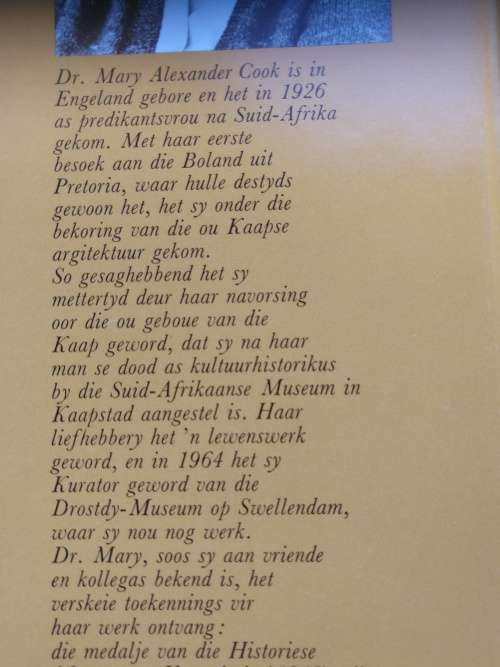 Dr. Mary Alexander Cook is in
Engeland gebore en het in 1926
as predikantsvrou na Suid-Afrika
gekom. Met haar eerste
besoek aan die Boland uit
Pretoria, waar hulle destyds
gewoon het, het sy onder die
bekoring van die ou Kaapse
argitektuur gekom.
So gesaghebbend het sy
mettertyd deur haar navorsing
oor die ou geboue van die
Kaap geword, dat sy na haar
man se dood as kultuurhistorikus
by die Suid-Afrikaanse Museum in
Kaapstad aangestel is. Haar
liefhebbery het 'n lewenswerk
geword, en in 1964 het sy
Kurator geword van die
Drostdy-Museum op Swellendam,
waar sy nou nog werk.
Dr. Mary, soos sy aan vriende
en kollegas bekend is, het
verskeie toekennings vir
haar werk ontvang:
die medalje van die Historiese